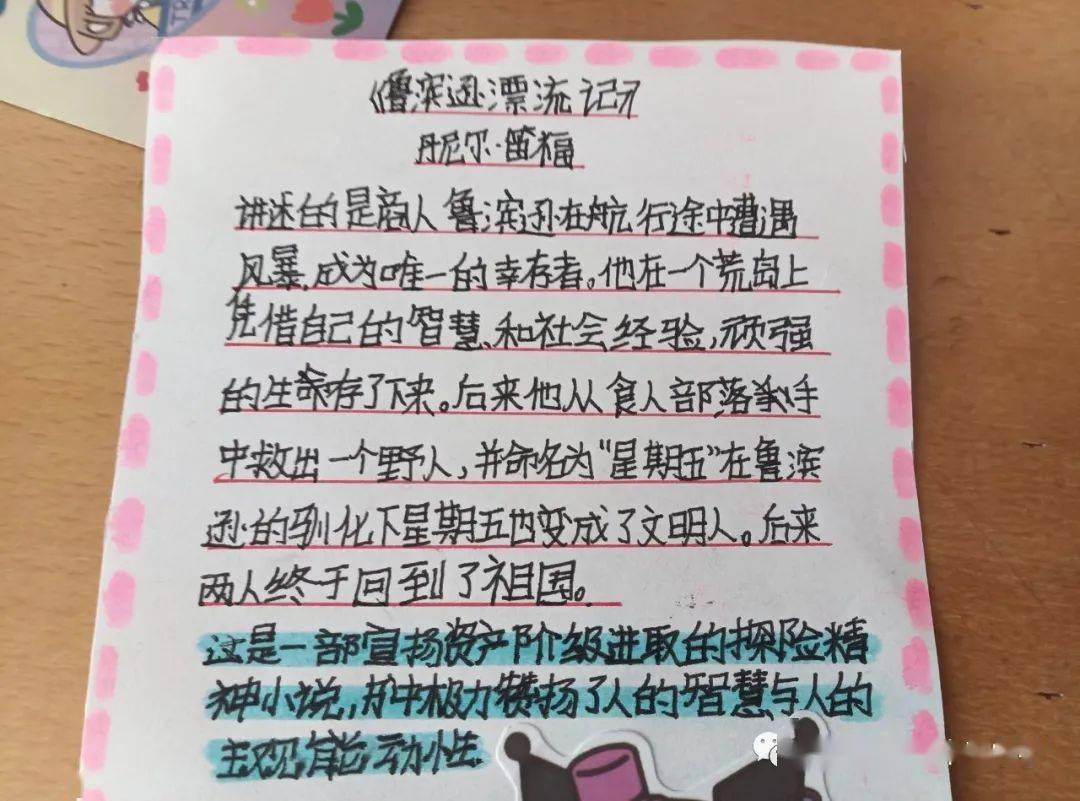 《鲁滨逊漂流记》
丹尼尔·笛福
讲述的是商人鲁滨逊在航行途中遭遇
风暴,成为唯一的幸存者。他在一个荒岛上
凭借自己的智慧和社会经验,顽强
的生命存了下来。后来他从食人部落手
中救出一个野人,并命名为“星期五”在鲁滨
逊的驯化下星期五也变成了文明人。后来
两人终于回到了祖国。
这是一部宣扬资产阶级进取的探险精
神小说,书中极力赞扬了人的智慧与人的
主观能动性